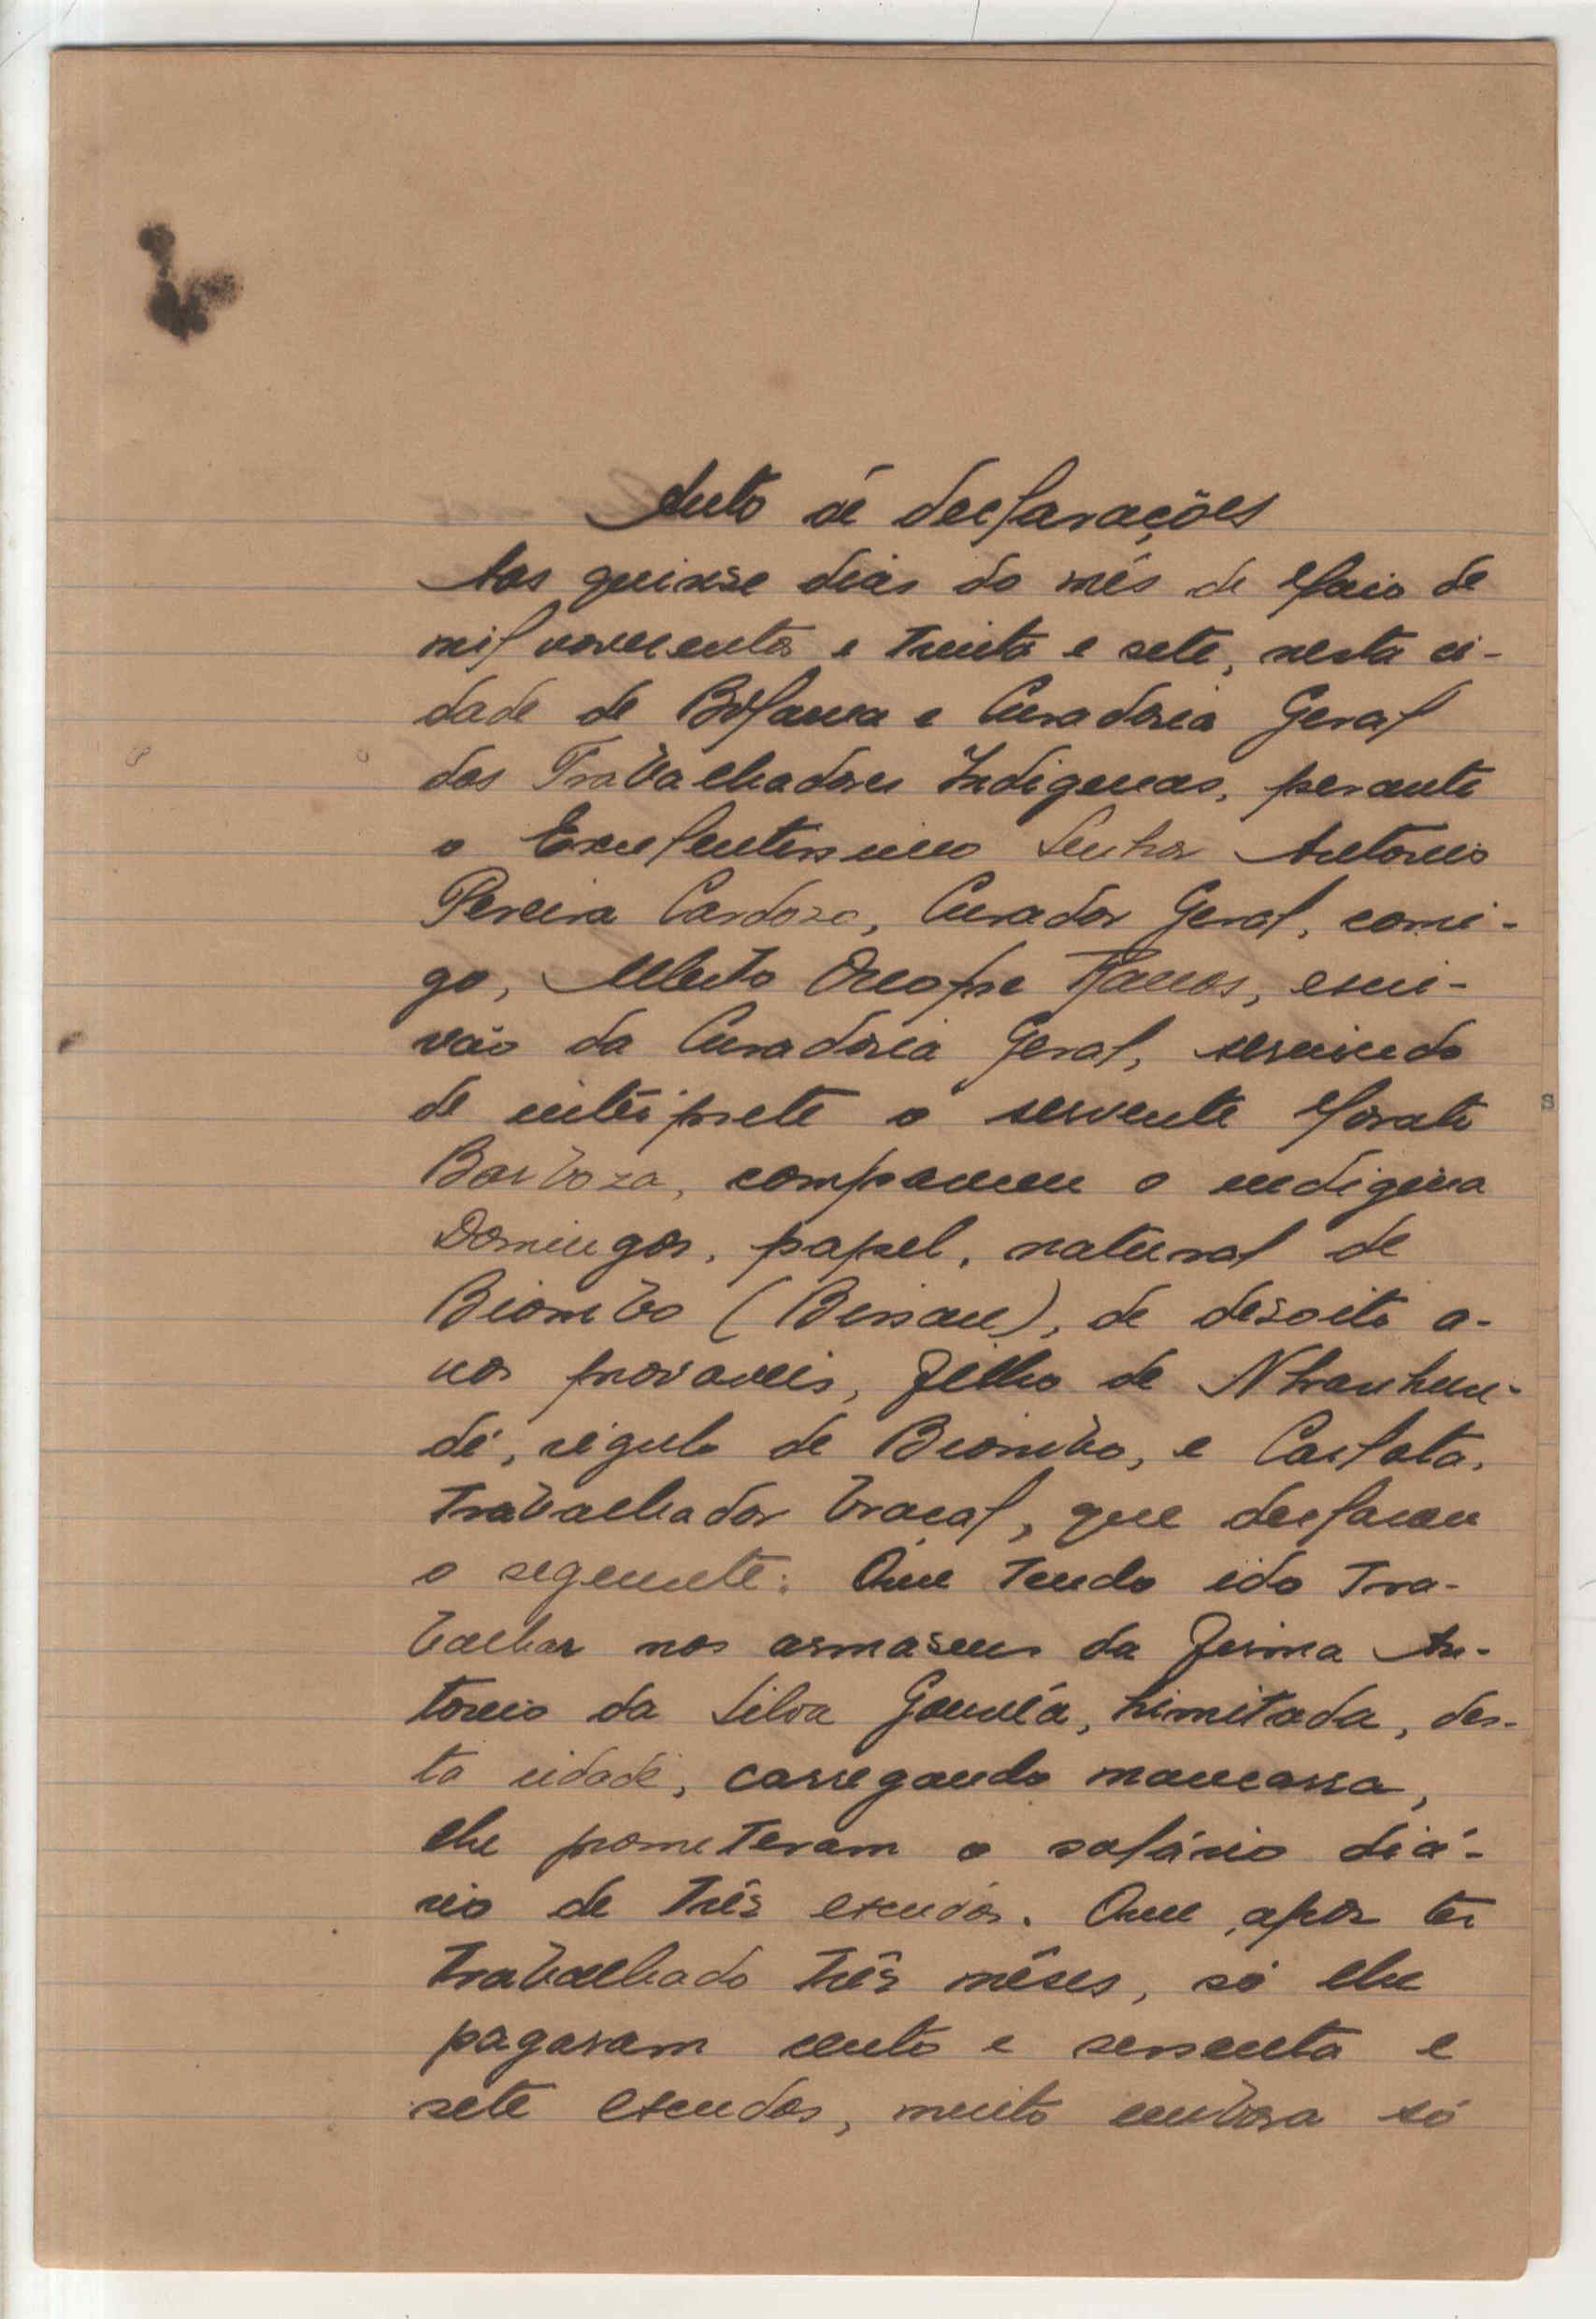 Auto de declarações
Aos quinze dias do mês de Maio de
mil novecentos e trinta e sete, nesta ci-
dade de Bolama e Curadoria Geral
dos Trabalhadores Indigenas, perante
o Excelentissimo Senhor Antonio
Pereira Cardozo, Curador Geral, comi-
go, Alberto Onofre Ramos, escri-
vão da Curadoria Geral, servindo
de intérprete o servente
Barboza, compareceu o indigena
Domingos, papel, natural de
Biombo (Bissau), de desoito a-
nos provaveis, filho de Nhranhun-
dé, régulo de Biombo, e Carlota,
trabalhador braçal, que declarou
o seguinte: Que tendo ido tra-
balhar nos armasens da firma An-
tonio da Silva Gouvêa, Limitada, des-
ta cidade, carregando mancarra,
lhe prometeram o salário diá-
rio de três escudos. Que após ter
trabalhado três mêses, só lhe
pagaram cento e sessenta e
sete escudos, muito embora só